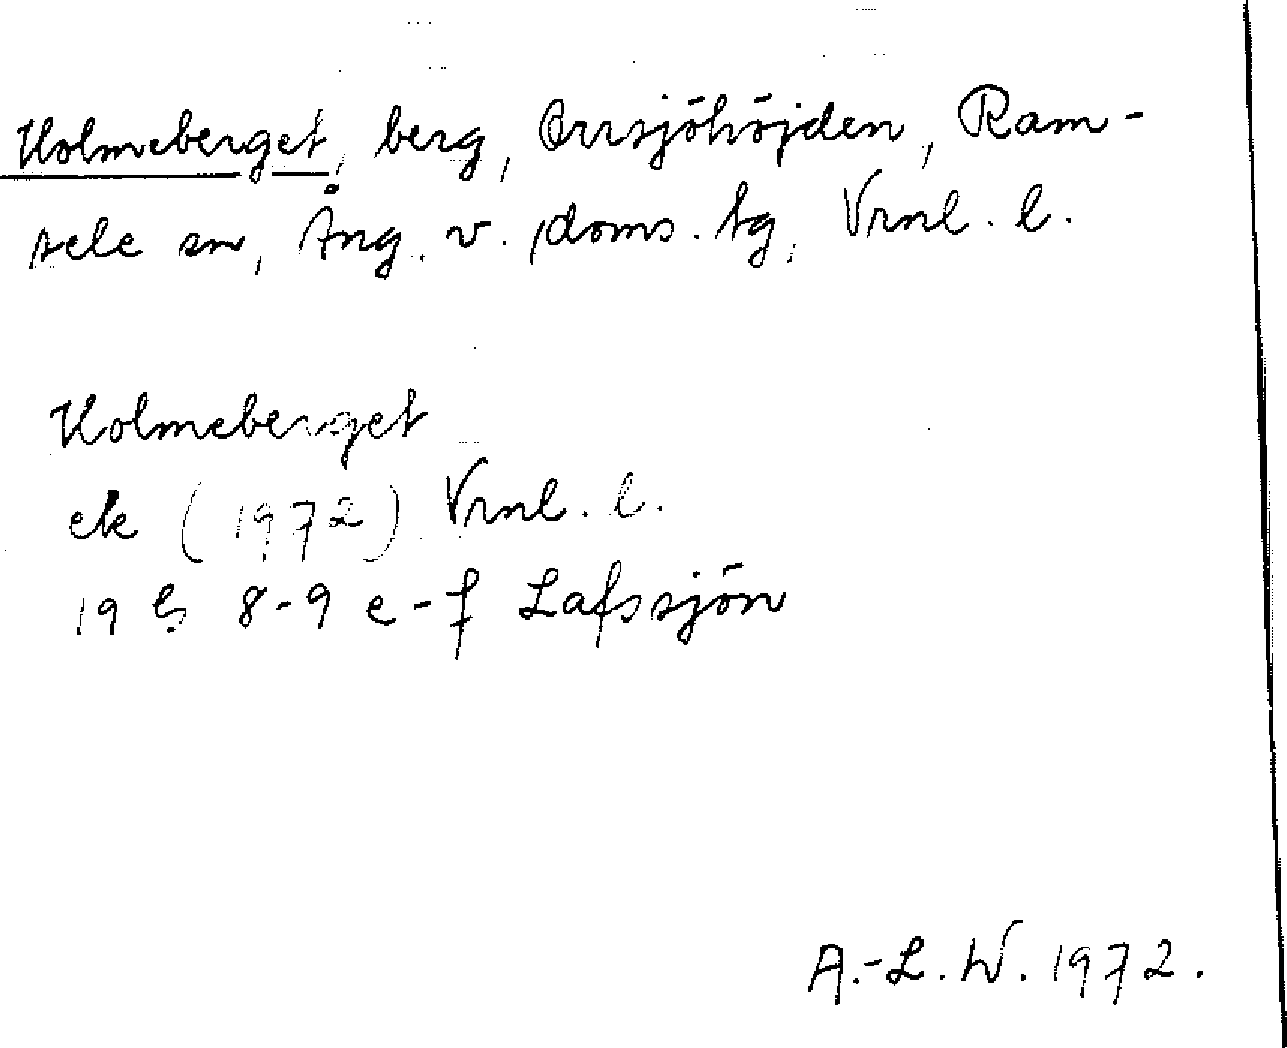 Holmeberget, berg, Orrsjöhöjden, Ram-
sele sn, Ång. v. doms. tg, Vrnl. l.
Holmeberget
ek (1972) Vrnl. l.
19 G 8-9 e-f Lafssjön
A.-L. W. 1972.